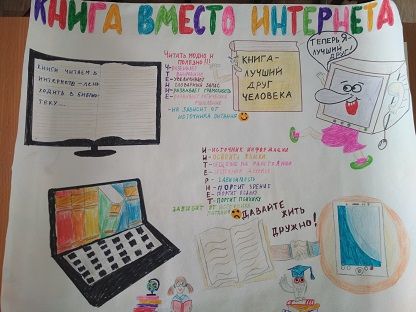 КНИГА ВМЕСТО ИНТЕРНЕТА
КНИГИ ЧИТАЕМ В
ИНТЕРНЕТЕ - ЛЕНЬ
ХОДИТЬ В БИБЛИО-
ТЕКУ...
ЧИТАТЬ МОДНО И
ПОЛЕЗНО!!!
- НЕ ЗАВИСИТ ОТ
ИСТОЧНИКА ПИТАНИЯ
КНИГА-
ЛУЧШИЙ
ДРУГ
ЧЕЛОВЕКА
ТЕПЕРЬ Я-
ЛУЧШИЙ
ДРУГ!
И - ИСТОЧНИК ИНФОРМАЦИИ
Р - ЗАВИСИМОСТЬ
Н - ПОРТИТ ЗРЕНИЕ
Е - ПОРТИТ ОСАНКУ
Т - ПОРТИТ ПСИХИКУ
ЗАВИСИТ ОТ ИСТОЧНИКА
ПИТАНИЯ
ДАВАЙТЕ ЖИТЬ
ДРУЖНО!